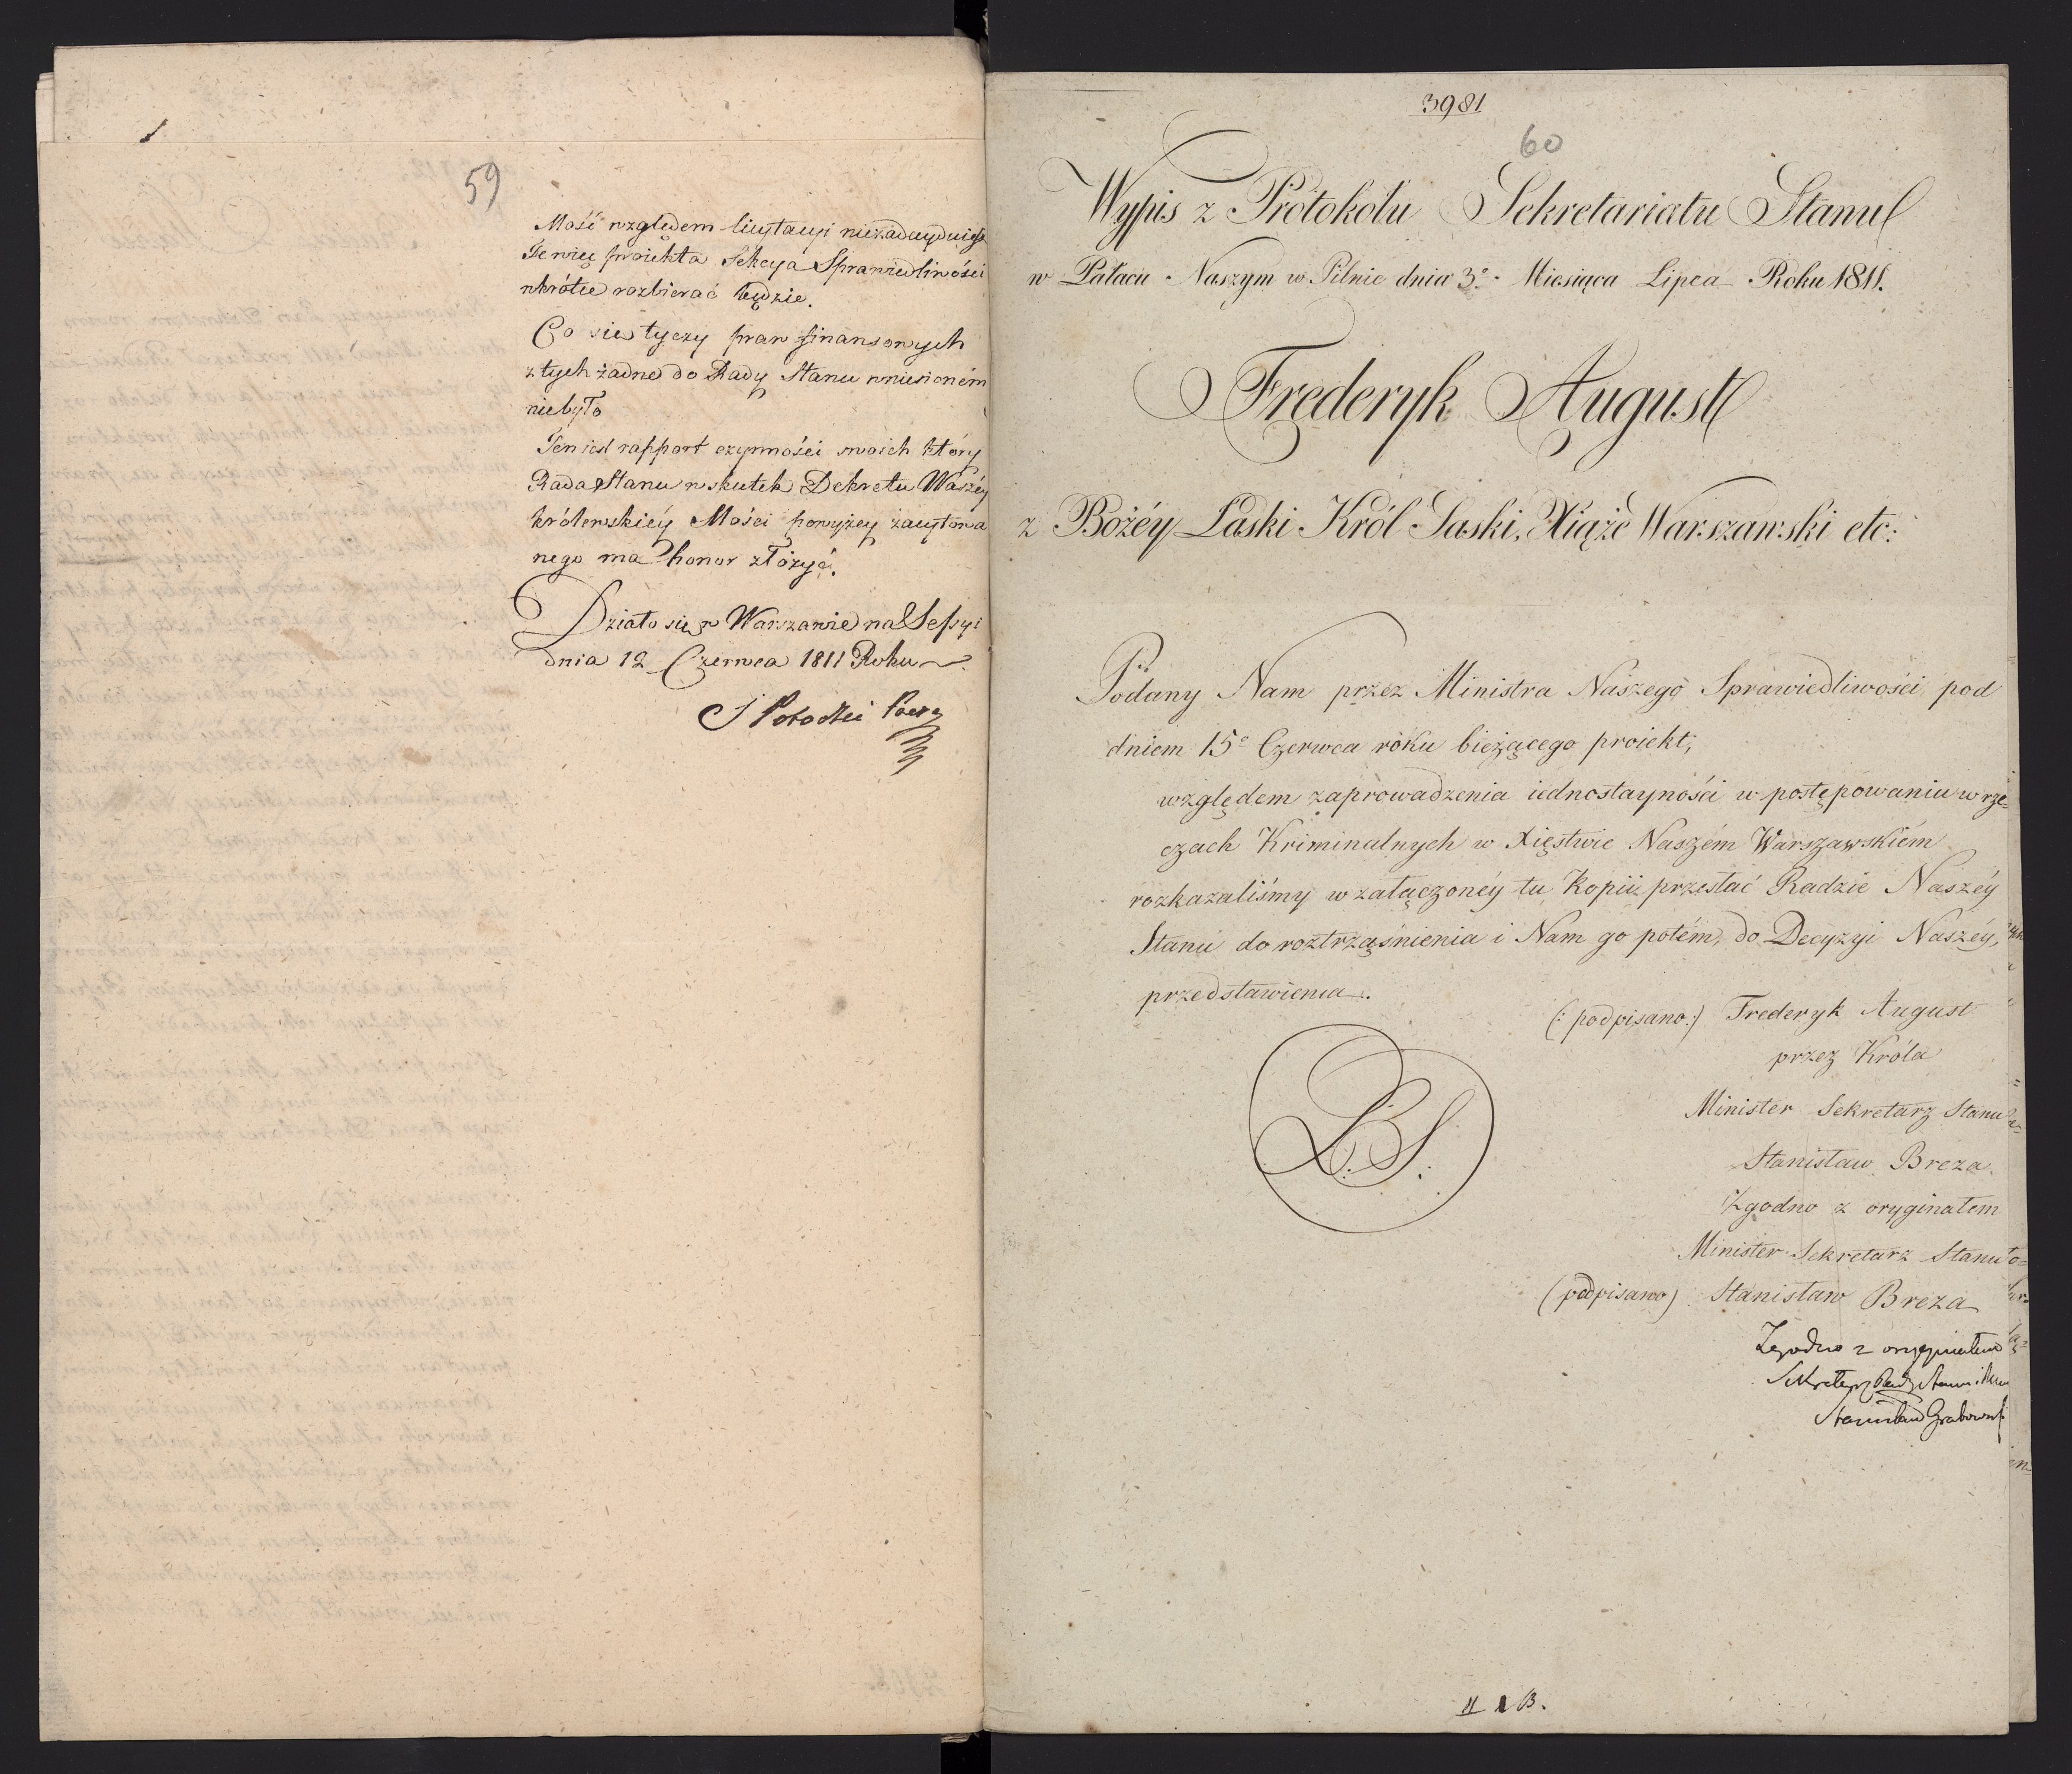 59
Mość względem licytacyi niezadaydniego
Te więc proiekta Sekcya Sprawiedliwości
wkrótce rozbierać będzie.
Co się tyczy praw finansowych
z tych żadne do Rady Stanu wniesionem
niebyło
Ten iest rapport czynności swoich który
Rada Stanu w skutek Dekretu Waszéy
królewskiéy Mości powyżey zacytowa
nego ma honor złożyć.
Działo się w Warszawie na Sessyi
dnia 12 Czerwca 1811 Roku
S Potocki Prez
3981
60
Wypis z Protokołu Sekretariatu Stanu
w Pałacu Naszym w Pilnic dnia 3º Miesiąca Lipca Roku 1811.
Frederyk August
z Bożéy Łaski Król Saski, Xiąże Warszawski etc:
Podany Nam przez Ministra Naszego Sprawiedliwości pod
dniem 15º Czerwca roku bieżącego proiekt,
względem zaprowadzenia iednostayności w postępowaniu w rze=
czach Kriminalnych w Xięstwie Naszém Warszawskiém
rozkazaliśmy w załączonéy tu Kopii przesłać Radzie Naszéy
Stanu do roztrząśnienia i Nam go potém, do Decyzyi Naszéy,
przedstawienia.
(: podpisano:) Frederyk August
przez Króla
Minister Sekretarz Stanu
Stanisław Breza.
L. S.
Zgodno z oryginałem
Minister Sekretarz Stanu
(podpisano) Stanisław Breza
Zgodno z oryginałem
Sekretarz Rady Stanu i
Stanisław Grabowsk
II 1 B.